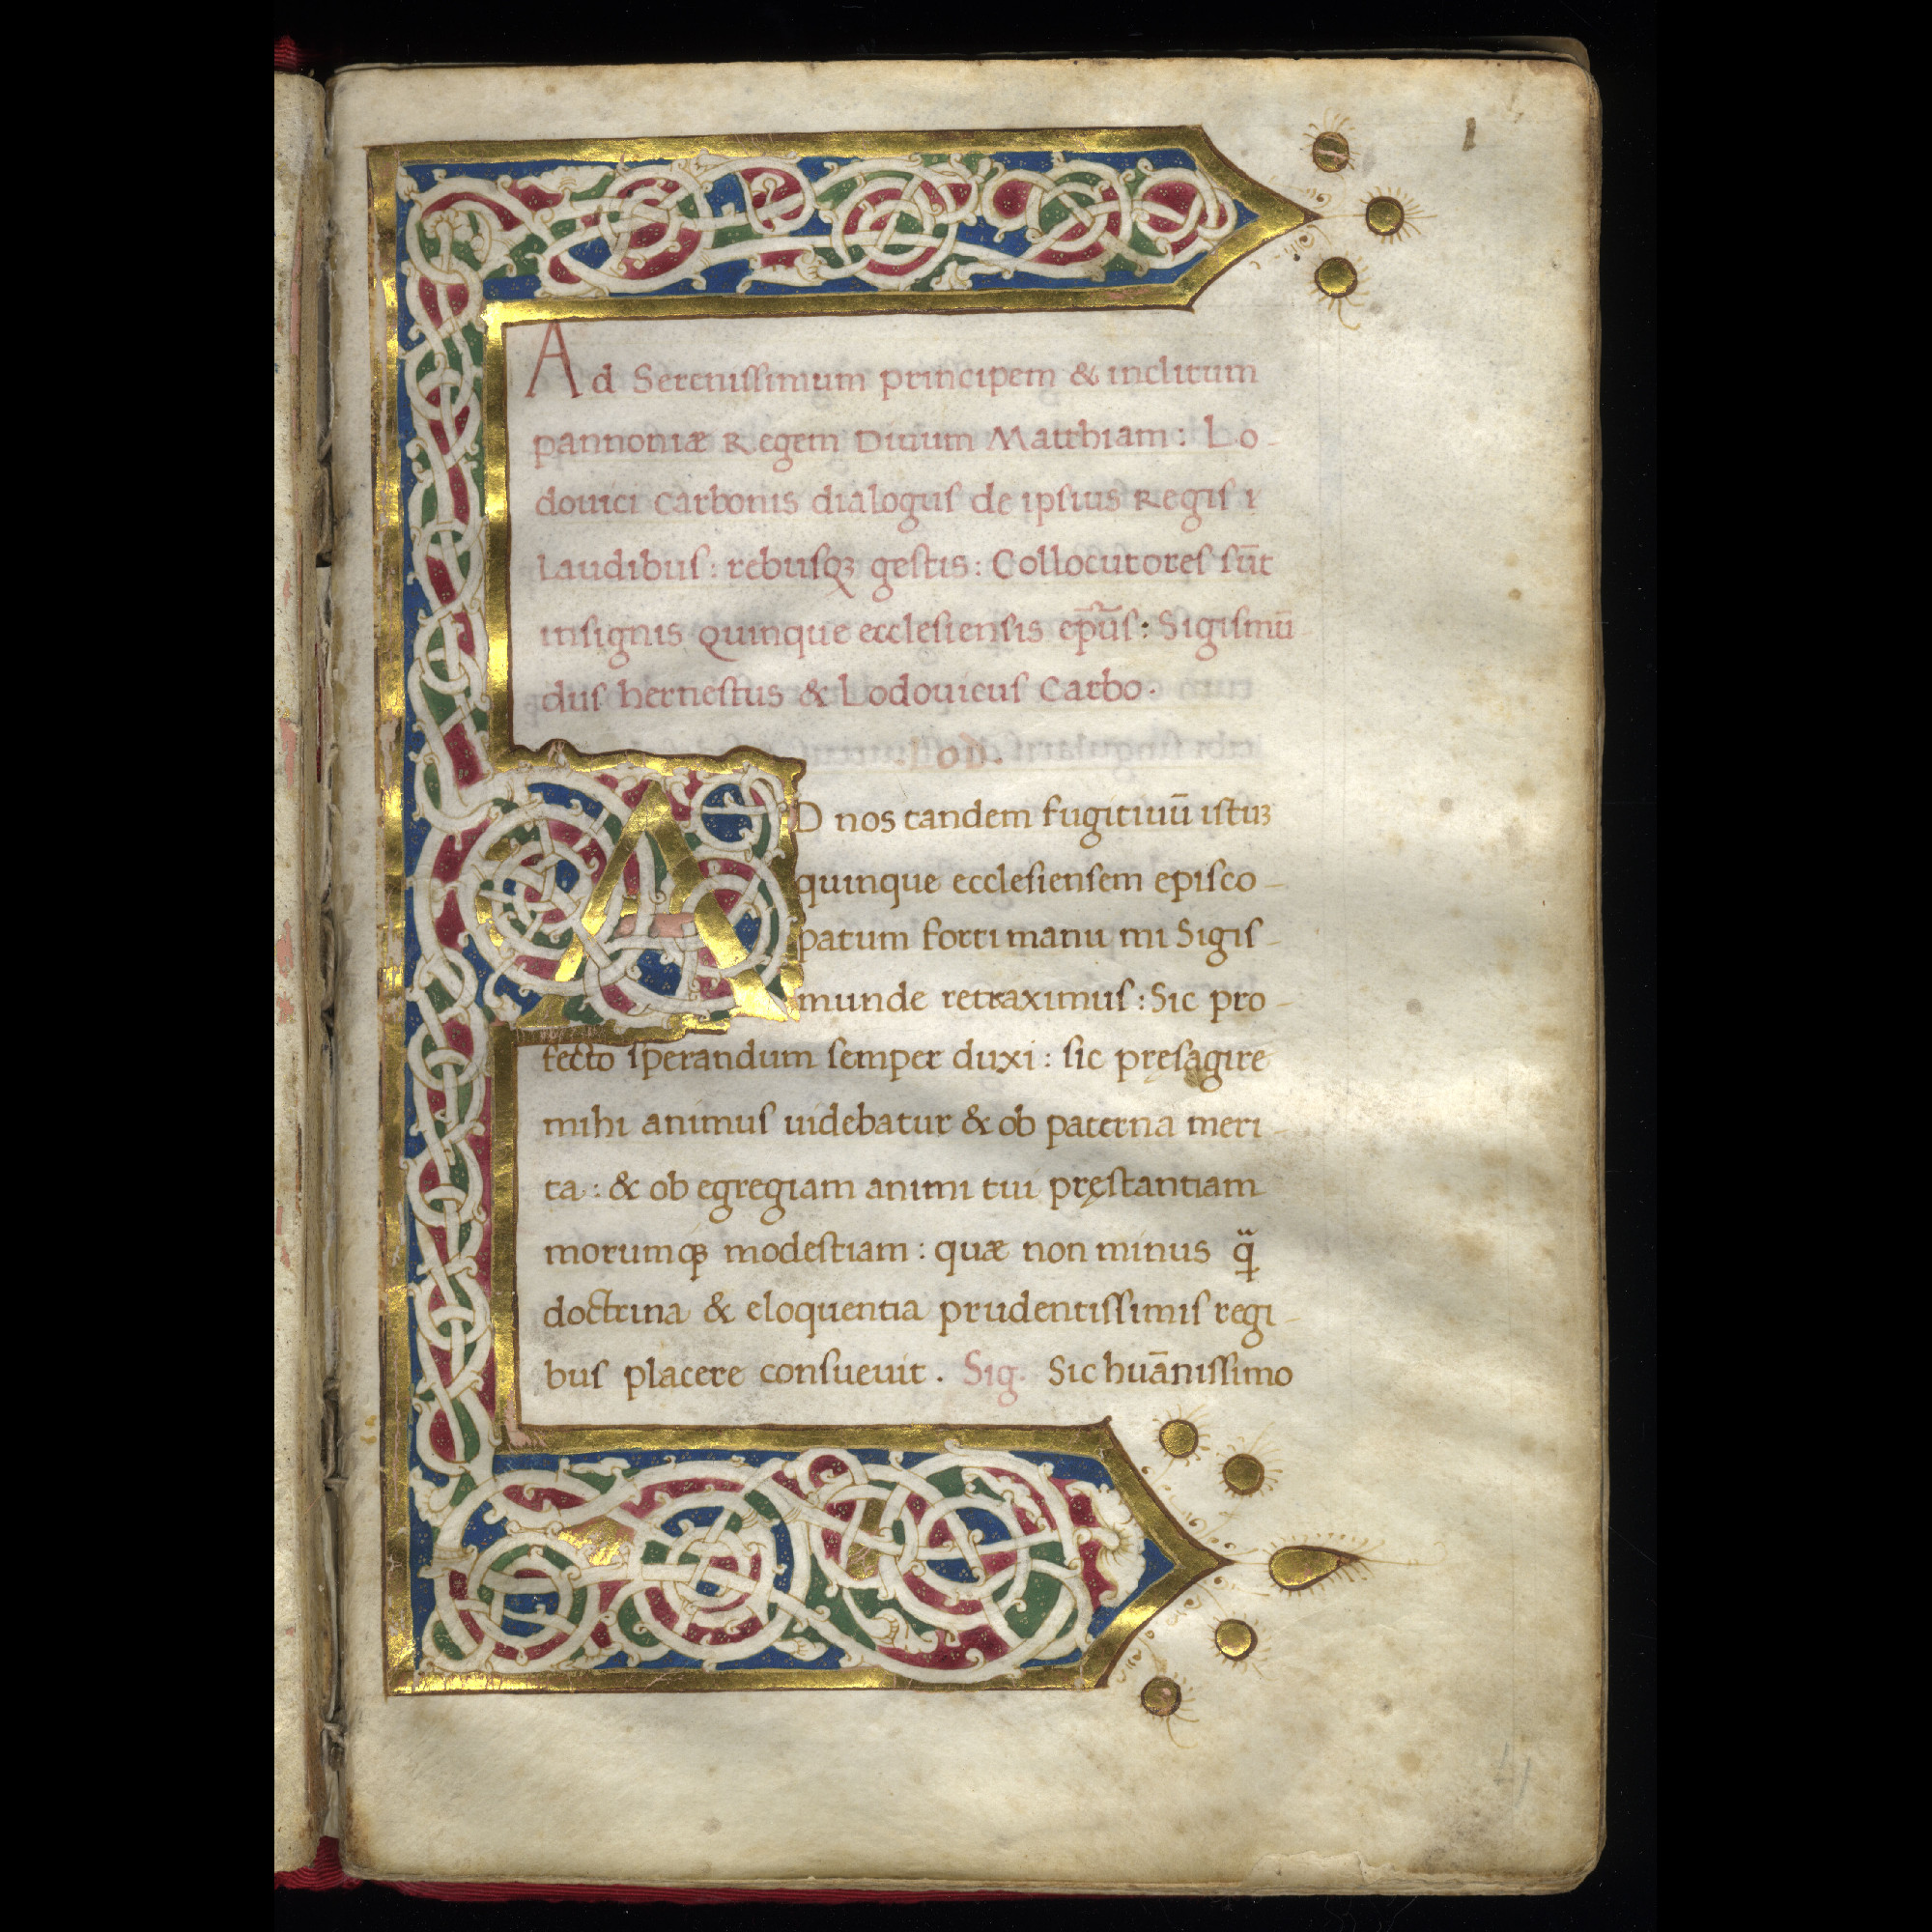 1
Ad Sereniſſimum principem & inclitum
pannoniæ Regem Diuum Matthiam: Lo-
douici Carbonis dialoguſ de ipſius Regiſ
Laudibuſ: rebuſqꝫ geſtis: Collocutoreſ ſūt
inſignis Quinque eccleſienſis ep̄uſ: Sigiſmū
duſ herneſtus & Lodouicuſ Carbo.
AD nos tandem fugitiuū iſtuꝫ
quinque eccleſienſem epiſco-
patum forti manu mi Sigiſ-
munde retraximuſ: Sic pro-
fecto ſperandum ſemper duxi: ſic pręſagire
mihi animuſ uidebatur & ob paterna meri-
ta: & ob egregiam animi tui pręſtantiam
morumqꝫ modeſtiam: quæ non minus q̃
doctrina & eloquentia prudentiſſimiſ regi-
buſ placere conſueuit. Sig. Sic huāniſſimo